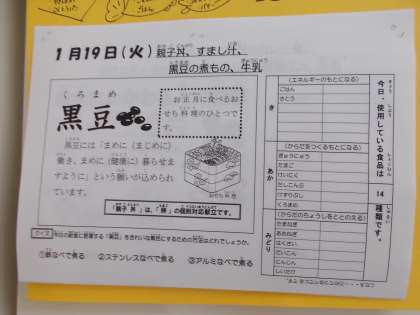 1月19日(火)親子丼、すまし汁、
黒豆の煮もの、牛乳
くろまめ
黒豆
お正月に食べるお
せち料理のひとつで
す。
黒豆には「まめに（まじめに）
働き、まめに（健康に）暮らせま
すように」という願いが込められ
ています。
おせち料理
「親子丼」は、「卵」の個別対応献立です。
クイズ
①鉄なべで煮る ②ステンレスなべで煮る ③アルミなべで煮る
今日、使用している食品は
14
種類です。
き
(エネルギーのもとになる)
ごはん
さとう
あか
(からだをつくるもとになる)
ぎゅうにゅう
たまご
けいにく
だしこんぶ
けずりぶし
くろまめ
みどり
(からだのちょうしをととのえる)
たまねぎ
あおねぎ
はくさい
だいこん
にんじん
しいたけ